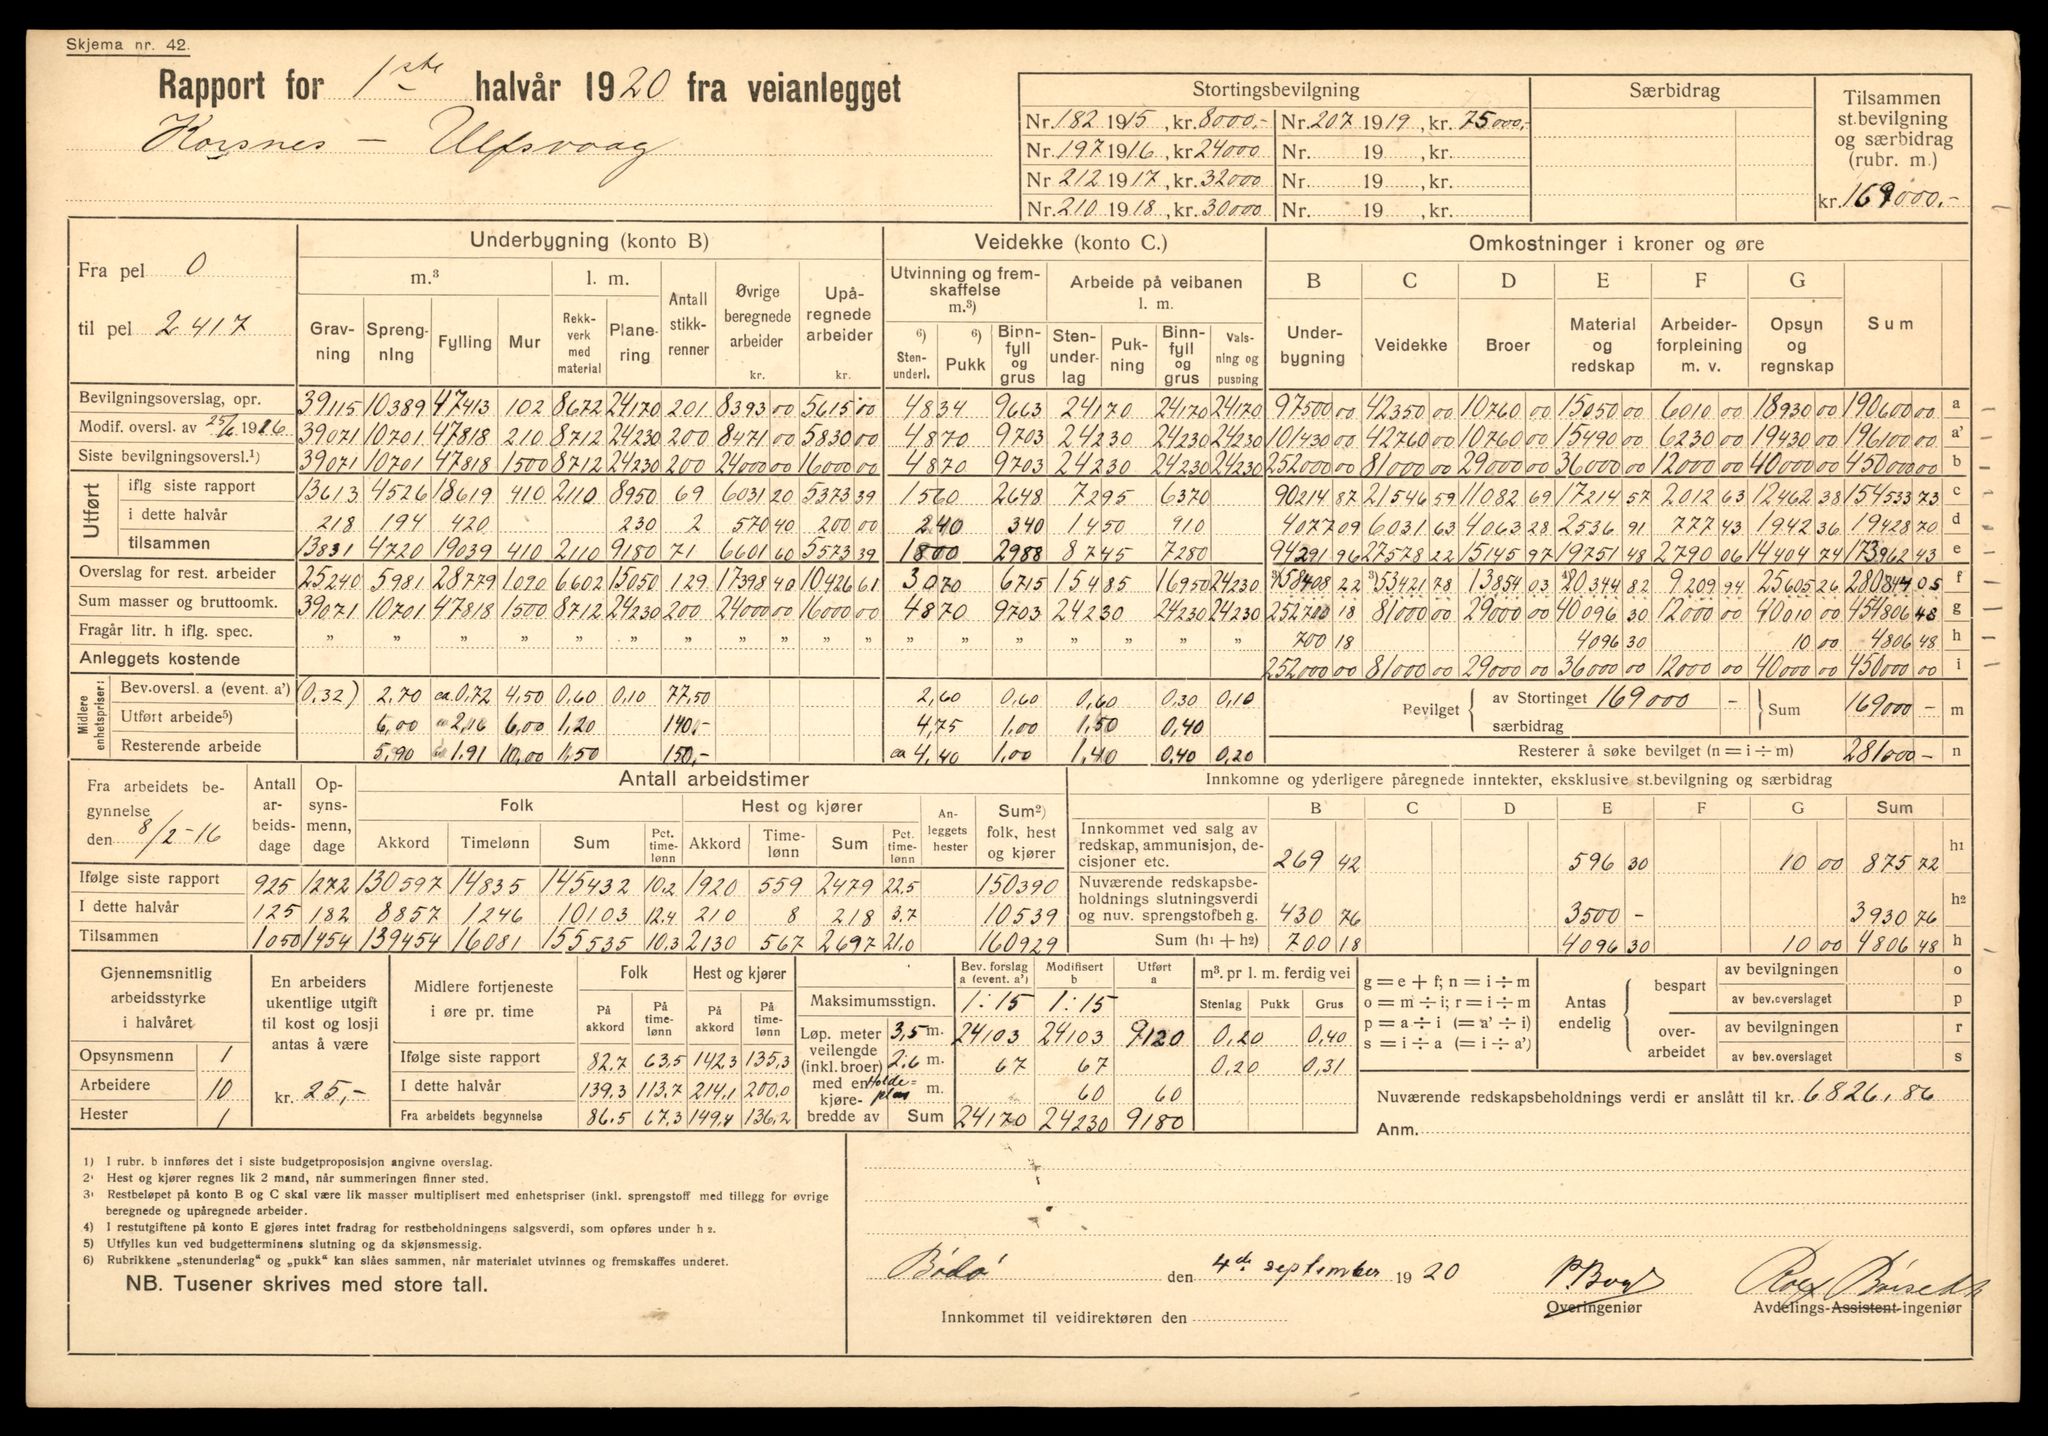 Skjema nr. 42.
Rapport for 1ste halvår 1920 fra veianlegget
Korsnes – Ulfsvaag
Stortingsbevilgning
Særbidrag
Tilsammen st.bevilgning og særbidrag (rubr. m.)
kr. 169000.-
Nr. 182 1915, kr. 8000,- Nr. 207 1919, kr. 75000,-
Nr. 197 1916, kr. 24000 Nr. 19 , kr.
Nr. 212 1917, kr. 32000 Nr. 19 , kr.
Nr. 210 1918, kr. 30000 Nr. 19 , kr.
Fra pel 0
til pel 2417
Underbygning (konto B)
Veidekke (konto C.)
Omkostninger i kroner og øre
m.³ l. m. Antall stikkrenner Øvrige beregnede arbeider kr. Upåregnede arbeider kr.
Utvinning og fremskaffelse m.³) Arbeide på veibanen l. m.
B C D E F G
Gravning Sprengning Fylling Mur Rekkverk med material Planering
6) Stenunderl. 6) Pukk Binnfyll og grus Stenunderlag Pukning Binnfyll og grus Valsning og pusning
Underbygning Veidekke Broer Material og redskap Arbeiderforpleining m. v. Opsyn og regnskap Sum
Bevilgningsoverslag, opr. 39115 10389 47413 102 8672 24170 201 8393 00 5615 00 4834 9663 24170 24170 24170 97500 00 42350 00 10760 00 15050 00 6010 00 18930 00 190600 00 a
Modif. oversl. av 25/6 1916 39071 10701 47818 210 8712 24230 200 8471 00 5830 00 4870 9703 24230 24230 24230 101430 00 42760 00 10760 00 15490 00 6230 00 19430 00 196100 00 a'
Siste bevilgningsoversl.¹) 39071 10701 47818 1500 8712 24230 200 24000 00 16000 00 4870 9703 24230 24230 24230 252000 00 81000 00 29000 00 36000 00 12000 00 40000 00 450000 00 b
Utført
iflg siste rapport 13613 4526 18619 410 2110 8950 69 6031 20 5373 39 1560 2648 7295 6370 90214 87 21546 59 11082 69 17214 57 2012 63 12462 38 154533 73 c
i dette halvår 218 194 420 230 2 570 40 200 00 240 340 1450 910 4077 09 6031 63 4063 28 2536 91 777 43 1942 36 19428 70 d
tilsammen 13831 4720 19039 410 2110 9180 71 6601 60 5573 39 1800 2988 8745 7280 94291 96 27578 22 15145 97 19751 48 2790 06 14404 74 173962 43 e
Overslag for rest. arbeider 25240 5981 28779 1090 6602 15050 129 17398 40 10426 61 3070 6715 15485 16950 24230 ³)158408 22 ³)53421 78 13854 03 ⁴)20344 82 9209 94 25605 26 280844 05 f
Sum masser og bruttoomk. 39071 10701 47818 1500 8712 24230 200 24000 00 16000 00 4870 9703 24230 24230 24230 252700 18 81000 00 29000 00 40096 30 12000 00 40010 00 454806 48 g
Fragår litr. h iflg. spec. „ „ „ „ „ „ „ „ „ „ „ „ „ „ „ „ „ „ 700 18 4096 30 10 00 4806 48 h
Anleggets kostende 252000 00 81000 00 29000 00 36000 00 12000 00 40000 00 450000 00 i
Midlere enhetspriser:
Bev.oversl. a (event. a') (0,32) 2,70 ca 0,72 4,50 0,60 0,10 77,50 2,60 0,60 0,60 0,30 0,10
Utført arbeide⁵) 6,00 2,16 6,00 1,20 140,- 4,75 1,00 1,50 0,40
Resterende arbeide 5,90 1,91 10,00 1,50 150,- ca 4,40 1,00 1,40 0,40 0,20
Bevilget av Stortinget 169000 – særbidrag Sum 169000 – m
Resterer å søke bevilget (n = i ÷ m) 281000 – n
Fra arbeidets begynnelse den 8/2-16
Antall arbeidsdage Opsynsmenn, dage
Antall arbeidstimer
Folk Hest og kjører Anleggets hester Sum²) folk, hest og kjører
Akkord Timelønn Sum Pct. timelønn Akkord Timelønn Sum Pct. timelønn
Ifølge siste rapport 925 1272 130597 14835 145432 10,2 1920 559 2479 22,5 150390
I dette halvår 125 182 8857 1246 10103 12,4 210 8 218 3,7 10539
Tilsammen 1050 1454 139454 16081 155535 10,3 2130 567 2697 21,0 160929
Innkomne og yderligere påregnede inntekter, eksklusive st.bevilgning og særbidrag
B C D E F G Sum
Innkommet ved salg av redskap, ammunisjon, decisjoner etc. 269 42 596 30 10 00 875 72 h¹
Nuværende redskapsbeholdnings slutningsverdi og nuv. sprengstofbeh g. 430 76 3500 – 3930 76 h²
Sum (h¹ + h²) 700 18 4096 30 10 00 4806 48 h
Gjennemsnitlig arbeidsstyrke i halvåret
Opsynsmenn 1
Arbeidere 10
Hester 1
En arbeiders ukentlige utgift til kost og losji antas å være
kr. 25,-
Midlere fortjeneste i øre pr. time
Folk Hest og kjører
På akkord På timelønn På akkord På timelønn
Ifølge siste rapport 82.7 63,5 142,3 135,3
I dette halvår 139,3 113,7 214,1 200,0
Fra arbeidets begynnelse 86,5 67,3 149,4 136,2
Bev. forslag a (event. a') Modifisert b Utført a
Maksimumsstign. 1:15 1:15
Løp. meter veilengde (inkl. broer) med en kjørebredde av
3,5 m. 24103 24103 9120
2,6 m. 67 67
Holdeplas m. 60 60
Sum 24170 24230 9180
m³. pr l. m. ferdig vei
Stenlag Pukk Grus
0,20 0,40
0,20 0,31
g = e + f; n = i ÷ m
o = m ÷ i; r = i ÷ m
p = a ÷ i (= a' ÷ i)
s = i ÷ a (= i ÷ a')
Antas endelig
bespart av bevilgningen o
av bev.overslaget p
overarbeidet av bevilgningen r
av bev.overslaget s
Nuværende redskapsbeholdnings verdi er anslått til kr. 6826,86
Anm.
1) I rubr. b innføres det i siste budgetproposisjon angivne overslag.
2) Hest og kjører regnes lik 2 mand, når summeringen finner sted.
3) Restbeløpet på konto B og C skal være lik masser multiplisert med enhetspriser (inkl. sprengstoff med tillegg for øvrige
beregnede og upåregnede arbeider.
4) I restutgiftene på konto E gjøres intet fradrag for restbeholdningens salgsverdi, som opføres under h 2.
5) Utfylles kun ved budgetterminens slutning og da skjønsmessig.
6) Rubrikkene „stenunderlag“ og „pukk“ kan slåes sammen, når materialet utvinnes og fremskaffes underet.
NB. Tusener skrives med store tall.
Bodø den 4de september 1920
Overingeniør
Avdelings-Assistent-ingeniør
Innkommet til veidirektøren den